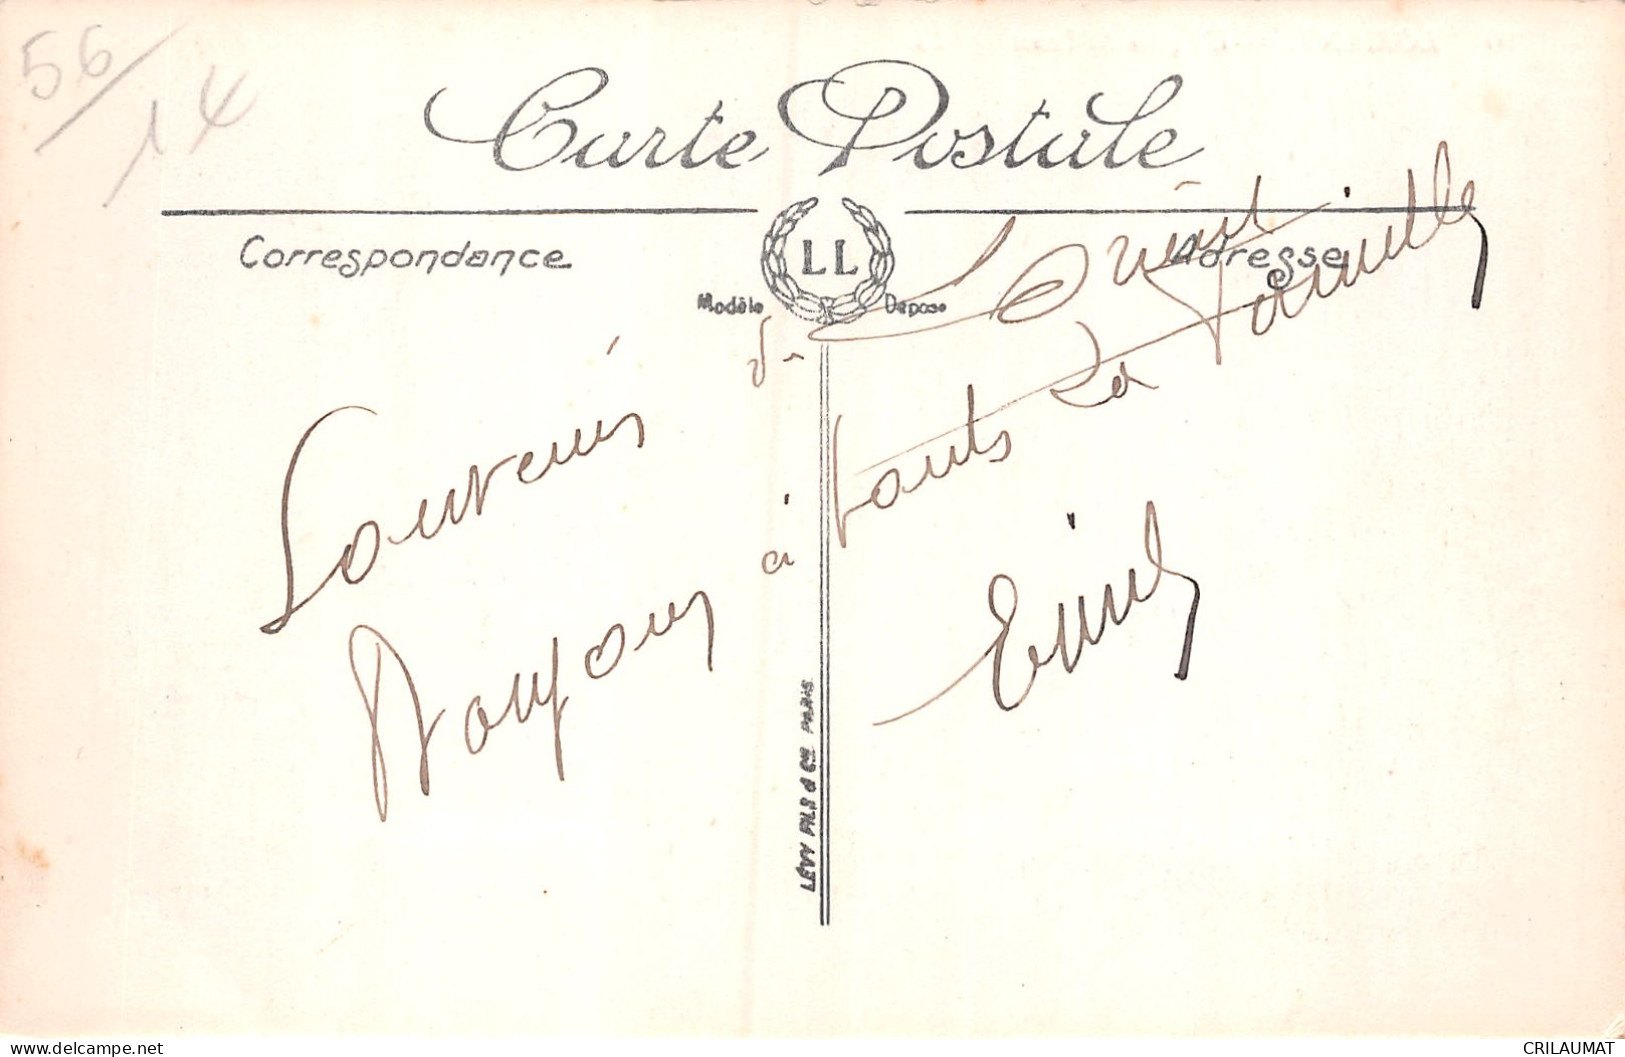 56/14
Carte Postale
Correspondance
LL
Adresse
Modèle Déposé
Souvenir de Lorient
Bonjour à touts La Famille
Emile
LÉVY FILS & Cie PARIS
delcampe.net
CRILAUMAT